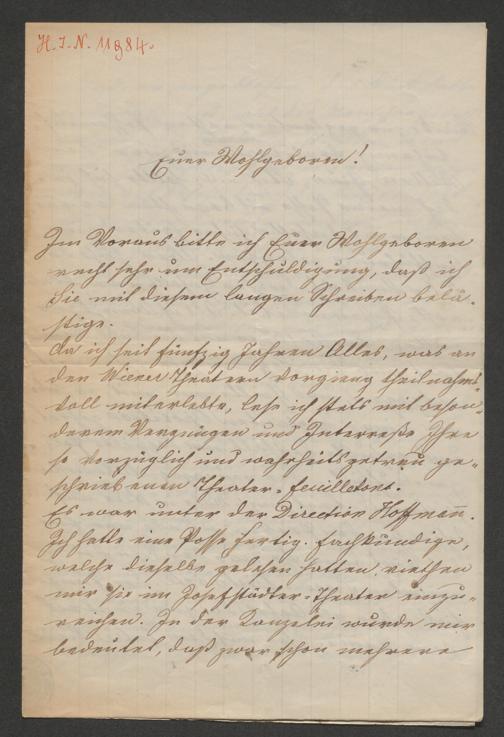 H. I. N. 11984.
Euer Wohlgeboren!
Im Voraus bitte ich Euer Wohlgeboren
recht sehr um Entschuldigung, daß ich
Sie mit diesem langen Schreiben belä-
stige.
Da ich seit fünfzig Jahren Alles, was an
den Wiener Theatern vorgieng theilnahms
voll miterlebte, lese ich stets mit beson-
derem Vergnügen und Interreße Ihre
so vorzüglich und wahrheitsgetreu ge-
schriebenen Theater-feuilletons.
Es war unter der Direction Hoffmann.
Ich hatte eine Posse fertig. Fachkundige,
welche dieselbe gelesen hatten, riethen
mir sie im Josefstädter-Theater einzu-
reichen. In der Kanzelei wurde mir
bedeutet, daß zwar schon mehrere